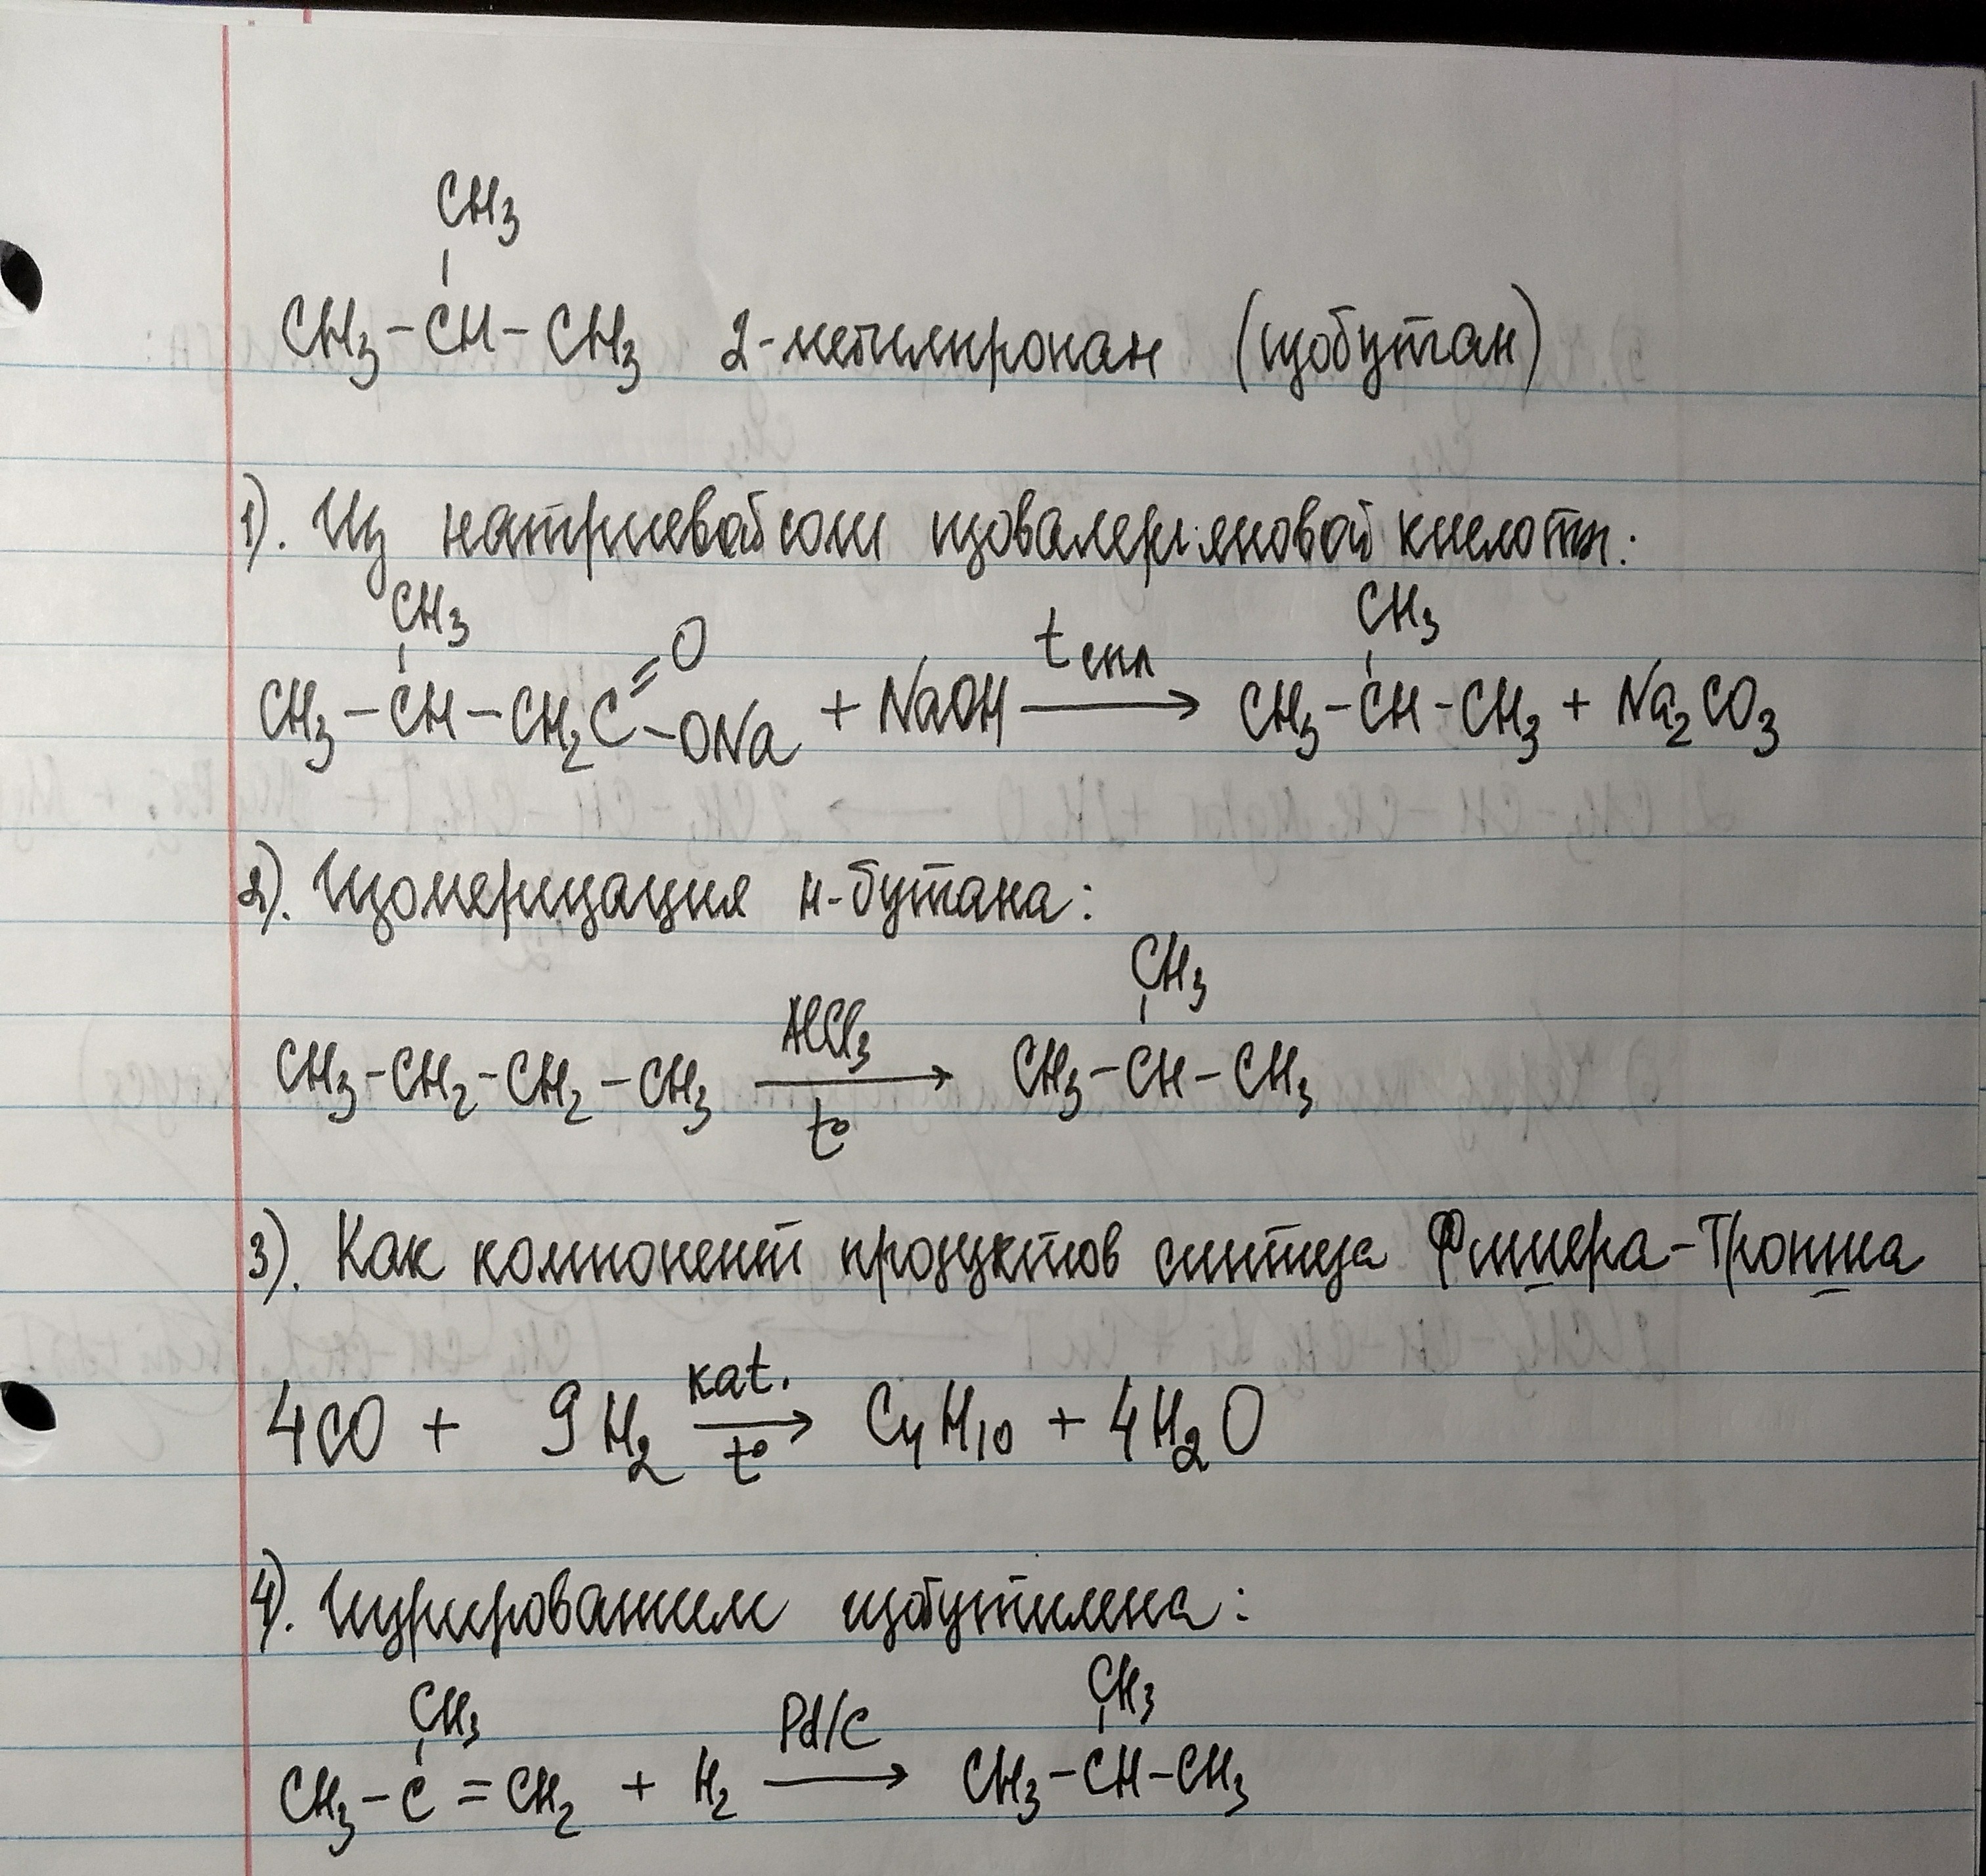 CH₃
CH₃-CH-CH₃ 2-метилпропан (изобутан)
1). Из натриевой соли изовалериановой кислоты:
CH₃ CH₃
CH₃-CH-CH₂C=O-ONa + NaOH tспл → CH₃-CH-CH₃ + Na₂CO₃
2). Изомеризация н-бутана:
CH₃
CH₃-CH₂-CH₂-CH₃ AlCl₃ t° → CH₃-CH-CH₃
3). Как компонент продуктов синтеза Фишера-Тропша
4CO + 9H₂ kat. t° → C₄H₁₀ + 4H₂O
4). Гидрированием изобутилена:
CH₃ CH₃
CH₃-C=CH₂ + H₂ Pd/C → CH₃-CH-CH₃